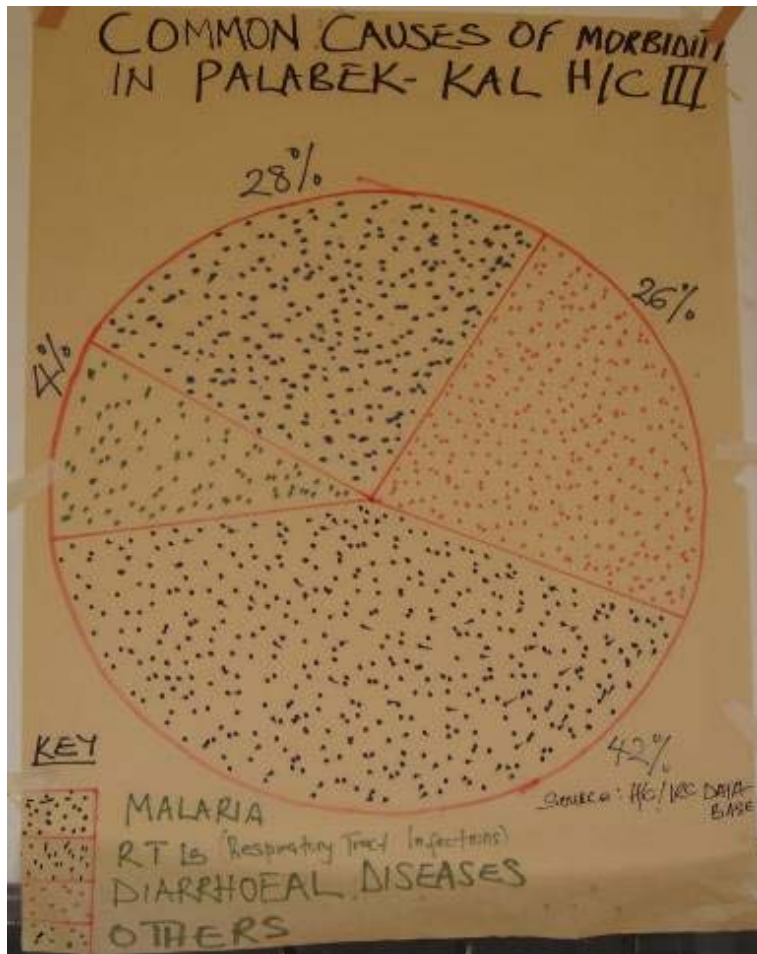 COMMON CAUSES OF MORBIDITY
IN PALABEK- KAL H/C III
28%
26%
4%
42%
KEY
SOURCE: H/C/ IRC DATA-
BASE
MALARIA
RTIs (Respiratory Tract Infections)
DIARRHOEAL DISEASES
OTHERS